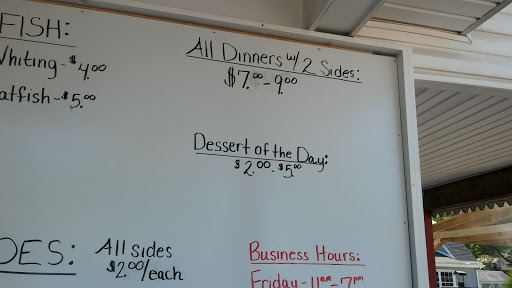 FISH:
Whiting-$4.00
atfish-$5.00
All Dinners w/ 2 Sides:
$7.00-9.00
Dessert of the Day:
$2.00-$5.00
DES:
All sides
$2.00/each
Business Hours:
Friday-11am-7pm